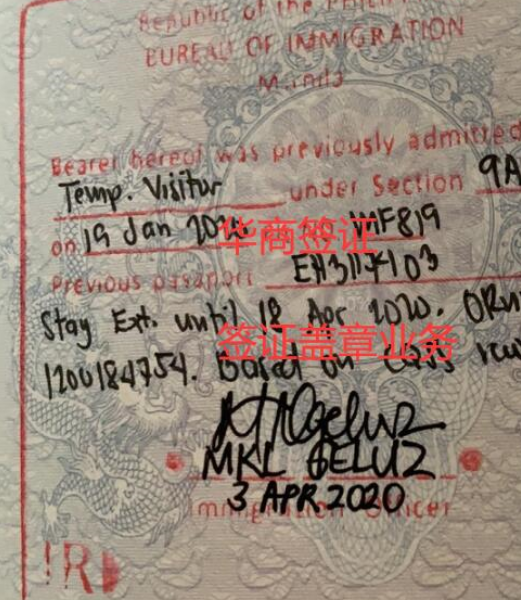 Republic of the
BUREAU OF IMMIGRATION
Manila
Bearer hereof was previously admitted
Temp. Visitor under Section 9A
on 19 Jan 华商签证 MF819
Previous passport EH3117103
Stay Ext. until 18 Apr 2020. ORN
1200184754. Based on 签证盖章业务
MKL GELUZ
3 APR 2020
Immigration Officer